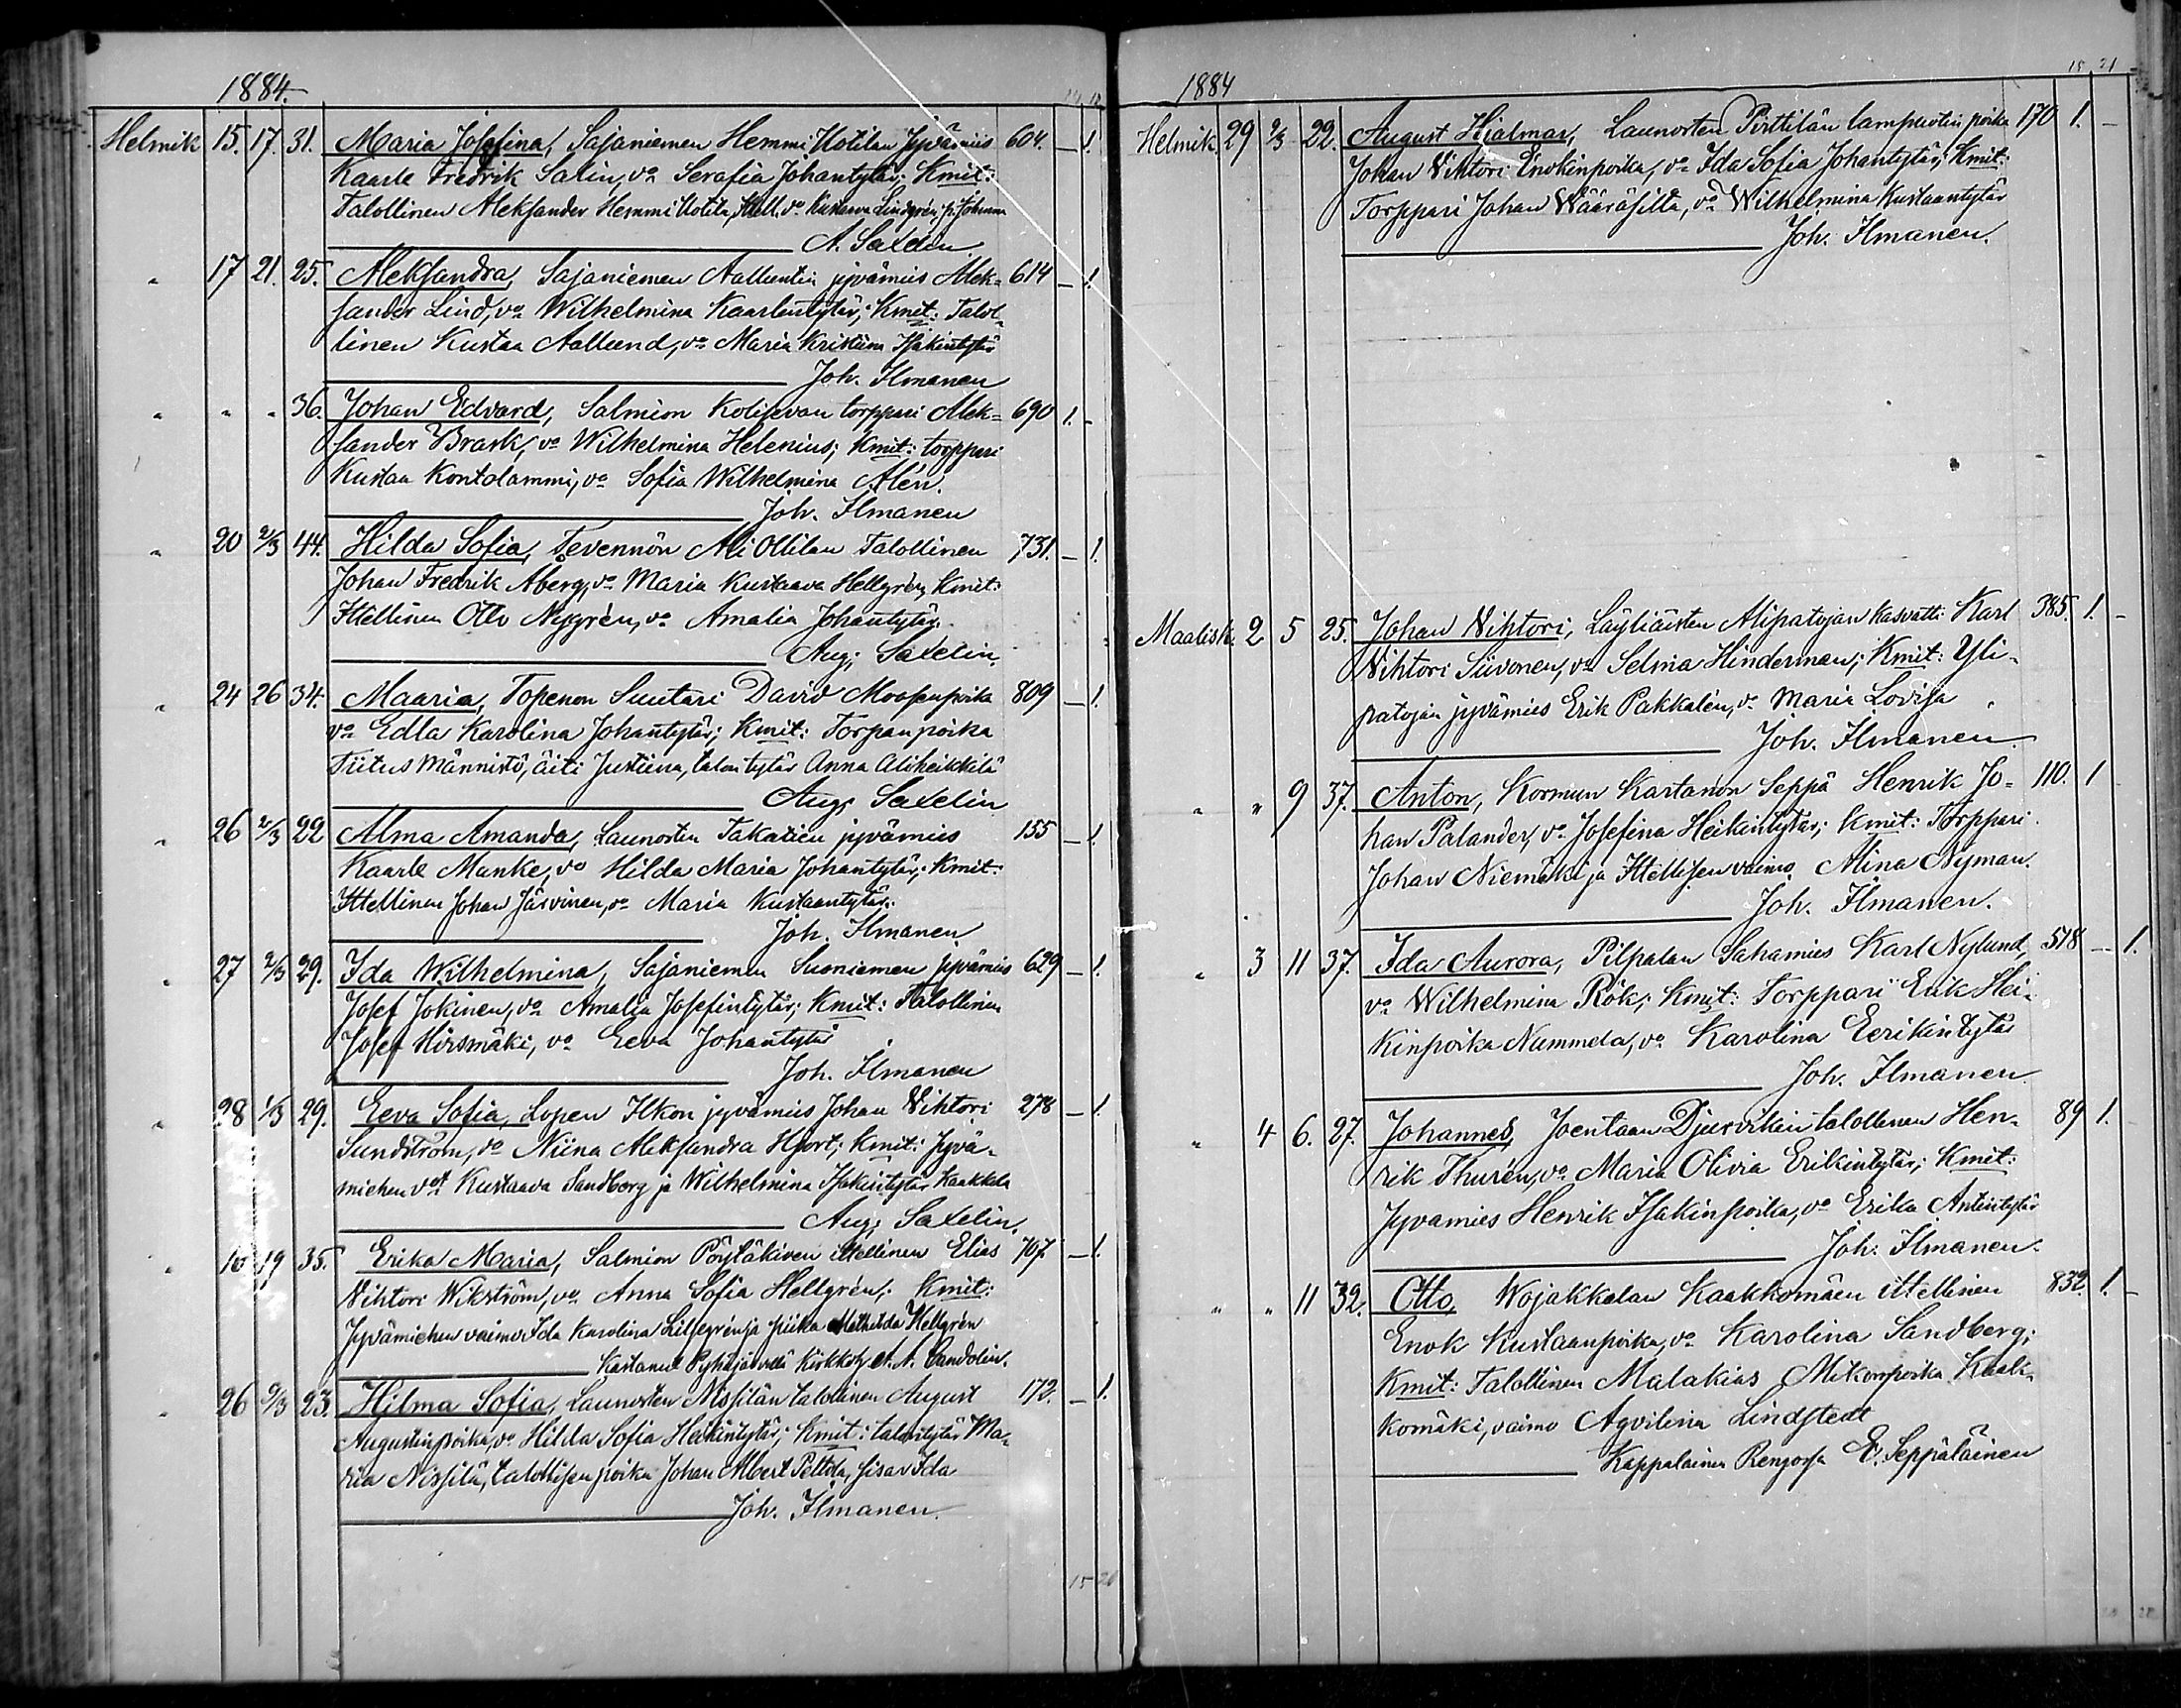 1884.
Helmik 15. 17. 31. Maria Josefina, Sajaniemen Hemmi Uotilan Jyvämies 604. — 1.
Kaarle Fredrik Salin, vo Serafia Johantytär; Kmit:
Talollinen Aleksander Hemmi Uotila, Itell. vo Kustaava Lindgrén, p. Johanna
A. Saxelin
" 17 21. 25. Aleksandra, Sajaniemen Aalluntin jyvämies Alek= 614 — 1.
sander Lind, vo Wilhelmina Kaarlentytär; Kmit: Talol-
linen Kustaa Aallund, vo Maria Kristiina Isakintytär
Joh. Ilmanen
" " " 36. Johan Edvard, Salmion Kolisevan torppari Alek= 690 1. -
sander Brask, vo Wilhelmina Helenius; Kmit: torppari
Kustaa Kontolammi, vo Sofia Wilhelmina Alén.
Joh. Ilmanen
" 20 2/3 44. Hilda Sofia, Tevennön Ali Ollilan Talollinen 731. — 1.
Johan Fredrik Åberg, vo Maria Kustaava Hellgrén, Kmit:
Ittellinen Otto Nygrén, vo Amalia Johantytär.
Aug. Saxelin.
" 24 26 34. Maaria, Topenon Suutari David Moosenpoika 809 — 1.
vo Edla Karolina Johantytär; Kmit: Torpanpoika
Tiitus Männistö, äiti Justiina, talontytär Anna Aliheikkilä
Aug. Saxelin
" 26 2/3 22 Alma Amanda, Launosten Takatien jyvämies 155 — 1.
Kaarle Manke, vo Hilda Maria Johantytär; Kmit:
Ittellinen Johan Järvinen, vo Maria Kustaantytär.
Joh. Ilmanen
" 27 2/3 29. Ida Wilhelmina, Sajaniemen Suoniemen jyvämies 629 — 1.
Josef Jokinen, vo Amalia Josefintytär; Kmit: Talollinen
Josef Hirsmäki, vo Eeva Johantytär
Joh. Ilmanen
" 28 1/3 29. Eeva Sofia, Lopen Ilkon jyvämies Johan Vihtori 278 — 1.
Sundström, vo Niina Aleksandra Hjort; Kmit: Jyvä-
miehen vot Kustaava Sandborg ja Wilhelmina Isakintytär Kaakkola
Aug. Saxelin.
" 10 19 35. Erika Maria, Salmion Pöytäkiven ittellinen Elias 707. — 1.
Vihtori Wikström, vo Anna Sofia Hellgrén; Kmit:
Jyvämiehen vaimo Ida Karolina Liljegrén ja piika Mathilda Hellgrén
Kastanut Pyhäjärvellä Kirkkoh. A. N. Candolin.
" 26 9/3 23. Hilma Sofia, Launosten Nissilän talollinen August 172. — 1.
Augustinpoika, vo Hilda Sofia Heikintytär; Kmit: talontytär Ma-
ria Nissilä, talollisen poika Johan Albert Peltola, sisar Ida
Joh. Ilmanen.
15 20
1884
15 21
Helmik. 29 9/3 22. August Hjalmar, Launosten Pirttilän lampuotin poika 170 1. —
Johan Vihtori Enokinpoika, vo Ida Sofia Johantytär; Kmit:
Torppari Johan Wääräsilta, vo Wilhelmina Kustaantytär
Joh. Ilmanen.
Maalisk. 2 5 25. Johan Vihtori, Läyliäisten Alipatojan kasvatti Karl 385. 1. -
Vihtori Siivonen, vo Selma Hinderman; Kmit: Yli-
patojan jyvämies Erik Pakkalén, vo Maria Lovisa
Joh. Ilmanen
" " 9 37. Anton, Kormun Kartanon Seppä Henrik Jo= 110. 1
han Palander, vo Josefina Heikintytär; Kmit: Torppari
Johan Niemäki ja Ittellisen vaimo Alina Nyman.
Joh. Ilmanen.
" 3 11 37. Ida Aurora, Pilpalan Sahamies Karl Nylund, 518 — 1.
vo Wilhelmina Rök; Kmit: Torppari Erik Hei-
kinpoika Nummela, vo Karolina Eerikintytär
Joh. Ilmanen
" 4 6. 27. Johannes, Joentaan Djurvikin talollinen Hen- 89 1.
rik Thurén, vo Maria Olivia Erikintytär; Kmit:
Jyvamies Henrik Isakinpoika, vo Erika Antintytär
Joh. Ilmanen.
" " 11 32. Otto, Wojakkalan Kaakkomäen ittellinen 832 1. -
Enok Kustaanpoika, vo Karolina Sandberg;
Kmit: Talollinen Malakias Mikonpoika Kaak-
komäki, vaimo Agvilina Lindstedt
Kappalainen Rengossa E. Seppäläinen